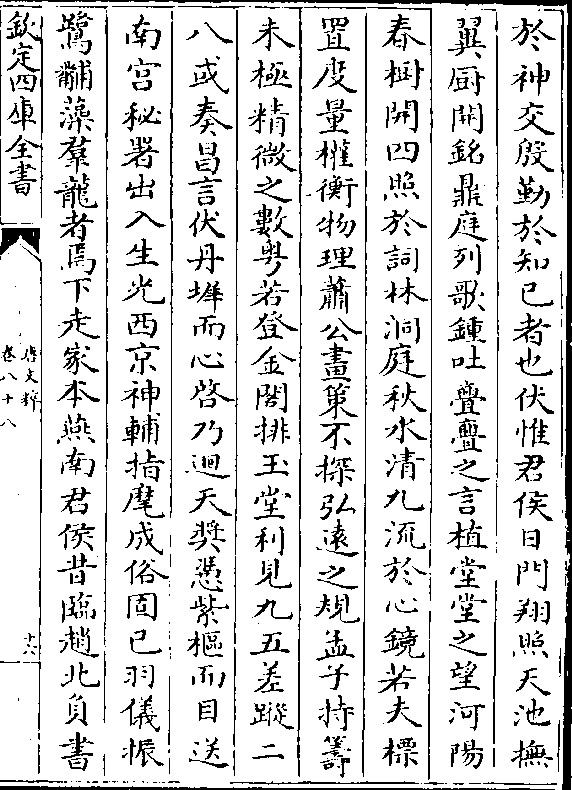 於神交殷勤於知已者也伏惟君侯日門翔照天池撫
翼厨開銘鼎庭列歌鍾吐亹亹之言植堂堂之望河陽
春樹開四照於詞林洞庭秋水清九流於心鏡若夫標
置度量權衡物理蕭公畫策不探弘遠之規孟子持籌
未極精微之數粤若登金閣排玉堂利見九五差蹤二
八或奏昌言伏丹墀而心啓乃迴天奬憑紫樞而目送
南宫秘署出入生光西京神輔指麾成俗固已羽儀振
鷺黼藻羣龍者焉下走家本燕南君侯昔臨趙北負書
欽定四庫全書
唐文粹
卷八十八
十六